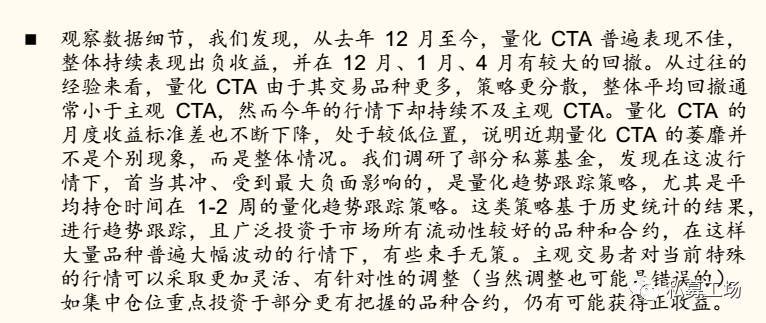 ■ 观察数据细节，我们发现，从去年 12 月至今，量化 CTA 普遍表现不佳，
整体持续表现出负收益，并在 12 月、1 月、4 月有较大的回撤。从过往的
经验来看，量化 CTA 由于其交易品种更多，策略更分散，整体平均回撤通
常小于主观 CTA，然而今年的行情下却持续不及主观 CTA。量化 CTA 的
月度收益标准差也不断下降，处于较低位置，说明近期量化 CTA 的萎靡并
不是个别现象，而是整体情况。我们调研了部分私募基金，发现在这波行
情下，首当其冲、受到最大负面影响的，是量化趋势跟踪策略，尤其是平
均持仓时间在 1-2 周的量化趋势跟踪策略。这类策略基于历史统计的结果，
进行趋势跟踪，且广泛投资于市场所有流动性较好的品种和合约，在这样
大量品种普遍大幅波动的行情下，有些束手无策。主观交易者对当前特殊
的行情可以采取更加灵活、有针对性的调整（当然调整也可能是错误的），
如集中仓位重点投资于部分更有把握的品种合约，仍有可能获得正收益。
私募工场